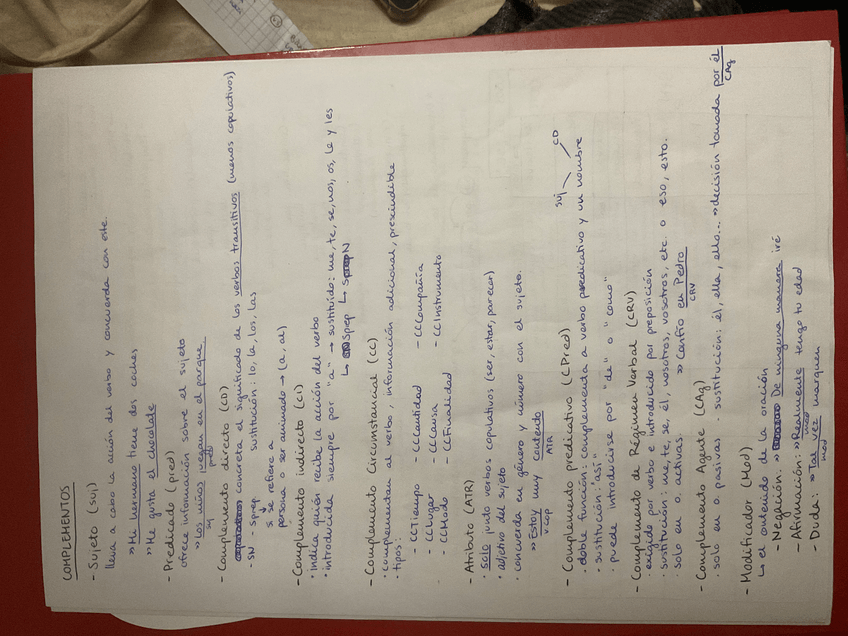 COMPLEMENTOS
- Sujeto (suj)
lleva a cabo la acción del verbo y concuerda con este.
» Mi hermano tiene dos coches
» Me gusta el chocolate
- Predicado (pred)
ofrece información sobre el sujeto
» Los niños juegan en el parque
suj pred
- Complemento directo (CD)
concreta el significado de los verbos transitivos (menos copulativos)
SN - Sprep sustitución: lo, la, los, las
si se refiere a
persona o ser animado → (a, al)
- Complemento indirecto (CI)
· indica quién recibe la acción del verbo
· introducida siempre por "a" → sustituido: me, te, se, nos, os, le y les
↳ Sprep ↳ SN
- Complemento Circunstancial (CC)
· complementan al verbo, información adicional, prescindible
· tipos:
- CCTiempo - CCCantidad - CCCompañía
- CCLugar - CCCausa - CCInstrumento
- CCModo - CCFinalidad
- Atributo (ATR)
· solo junto verbos copulativos (ser, estar, parecer)
· adjetivo del sujeto
· concuerda en género y número con el sujeto.
» Estoy muy contento
V COP ATR
- Complemento predicativo (CPred) suj CD
· doble función: complementa a verbo predicativo y un nombre
· sustitución: "así"
· puede introducirse por "de" o "como"
- Complemento de Régimen Verbal (CRV)
· exigido por verbo e introducido por preposición
· sustitución: me, te, se, él, nosotros, vosotros, etc. o eso, esto.
· solo en o. activas. » Confío en Pedro
CRV
- Complemento Agente (CAg)
· solo en o. pasivas · sustitución: él, ella, ello... » decisión tomada por él
CAg
- Modificador (Mod)
↳ el contenido de la oración
- Negación: » De ninguna manera iré
- Afirmación: » Realmente tengo tu edad
mod
- Duda: » Tal vez marquen
mod